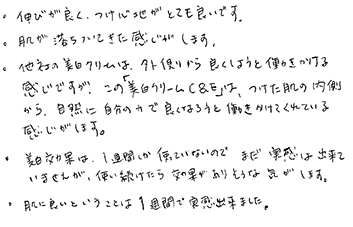 ・伸びが良く、つけ心地がとても良いです。
・肌が落ちついてきた感じがします。
・他社の美白クリームは、外側から良くしようと働きかける
感じですが、この「美白クリームC&E」は、つけた肌の内側
から、自然に自分の力で良くなろうと働きかけてくれている
感じがします。
・美白効果は、1週間しか使っていないので まだ実感は出来て
いませんが、使い続けたら効果がありそうな気がします。
・肌に良いということは1週間で実感出来ました。